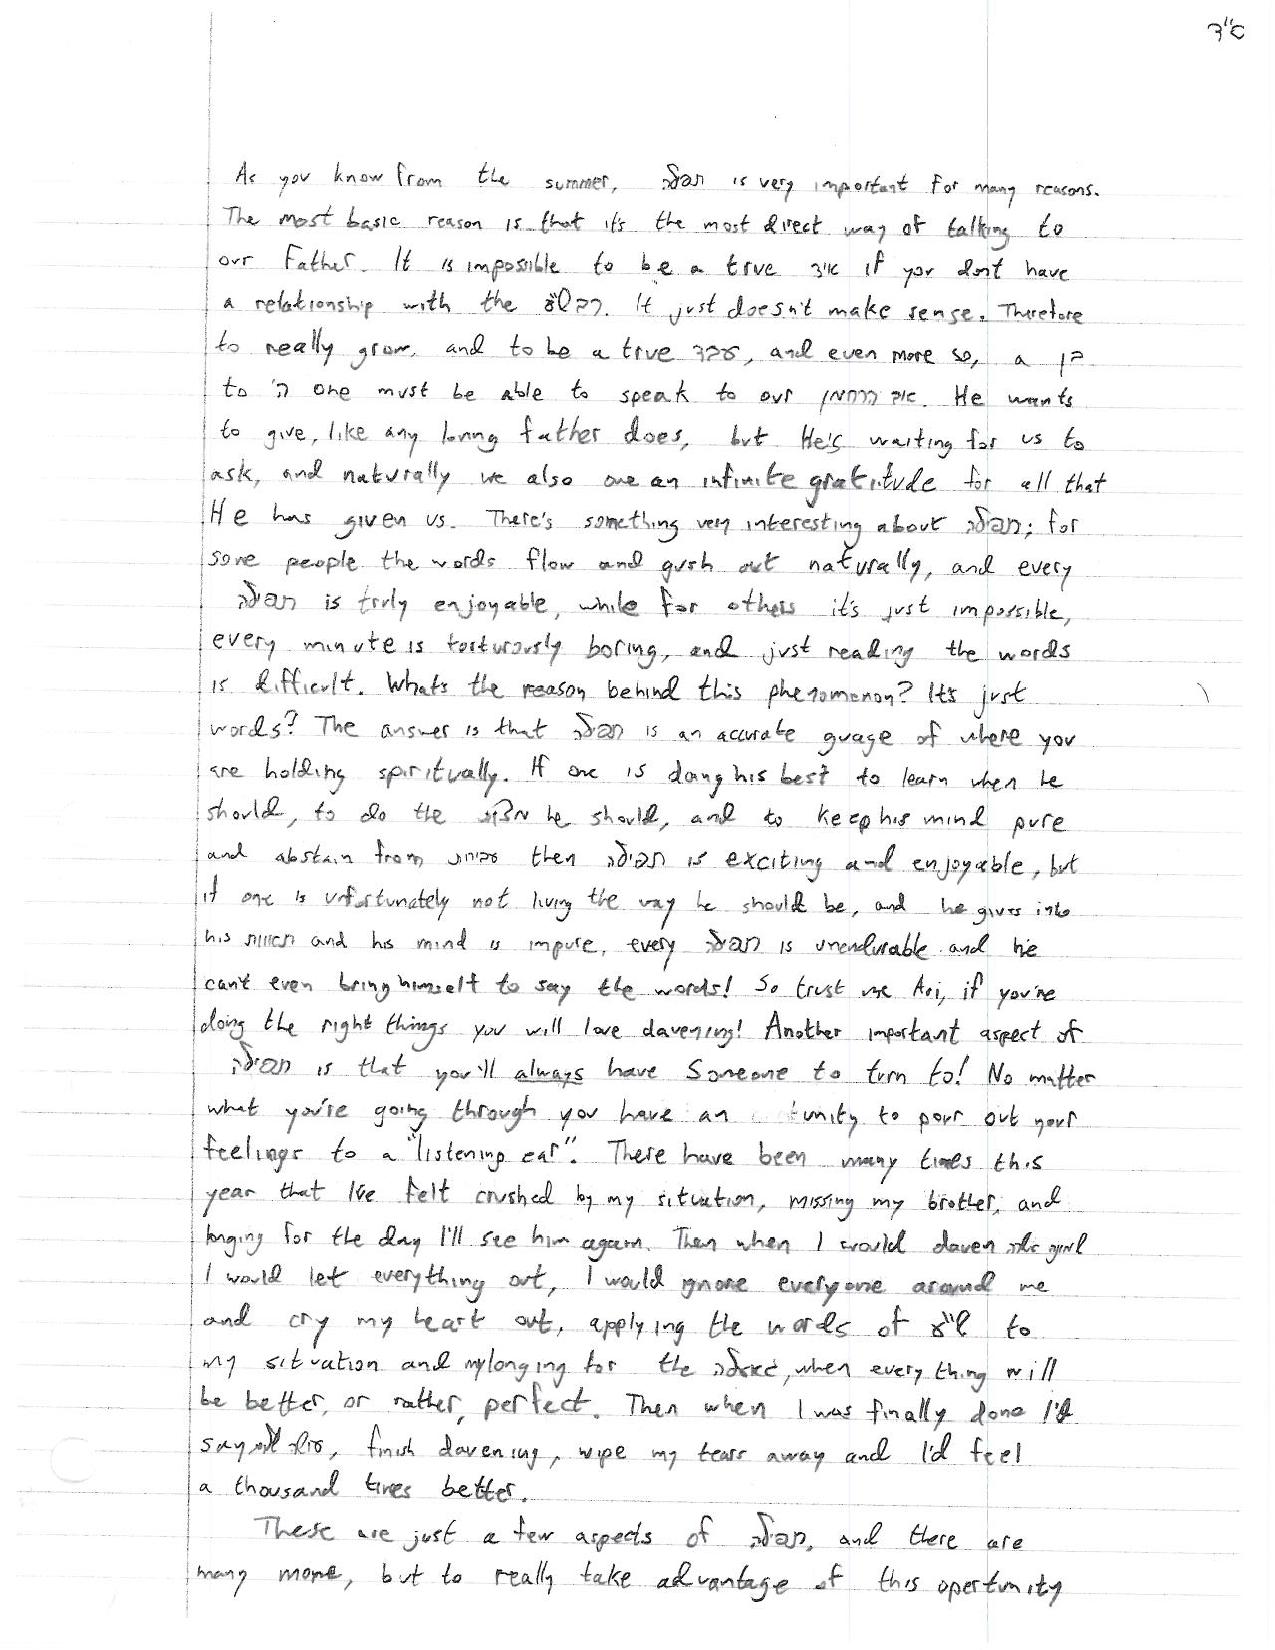 בס"ד
As you know from the summer, תפלה is very important for many reasons.
The most basic reason is that it's the most direct way of talking to
our Father. It is impossible to be a true עבד if you don't have
a relationship with the רבש"ע. It just doesn't make sense. Therefore
to really grow, and to be a true עבד, and even more so, a בן
to ה' one must be able to speak to our אב הרחמן. He wants
to give, like any loving father does, but He's waiting for us to
ask, and naturally we also owe an infinite gratitude for all that
He has given us. There's something very interesting about תפילה; for
some people the words flow and gush out naturally, and every
תפילה is truly enjoyable, while for others it's just impossible,
every minute is torturously boring, and just reading the words
is difficult. What's the reason behind this phenomenon? It's just
words? The answer is that תפילה is an accurate guage of where you
are holding spiritually. If one is doing his best to learn when he
should, to do the מצוות he should, and to keep his mind pure
and abstain from עבירות then תפילה is exciting and enjoyable, but
if one is unfortunately not living the way he should be, and he gives into
his תאוות and his mind is impure, every תפילה is unendurable and he
can't even bring himself to say the words! So trust me Ari, if you're
doing the right things you will love davening! Another important aspect of
תפילה is that you'll always have Someone to turn to! No matter
what you're going through you have an tunity to pour out your
feelings to a "listening ear". There have been many times this
year that I've felt crushed by my situation, missing my brother, and
longing for the day I'll see him again. Then when I would daven
I would let everything out, I would ignore everyone around me
and cry my heart out, applying the words of to
my situation and my longing for the גאולה, when every thing will
be better, or rather, perfect. Then when I was finally done I'd
say, finish davening, wipe my tears away and I'd feel
a thousand times better.
These are just a few aspects of תפילה, and there are
many more, but to really take advantage of this opertunity